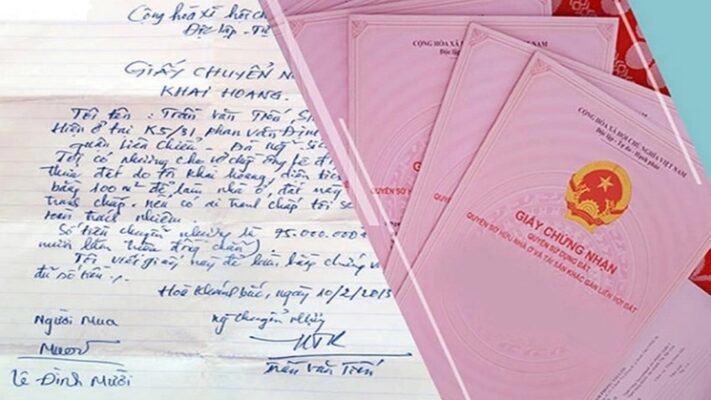 Cộng hòa xã hội ch
Độc lập - Tự
GIẤY CHUYỂN N
KHAI HOANG.
Tôi tên : Trần Văn Tiến S
Hiện ở tại K5/31, phan Văn Định
quận Liên Chiểu, Đà Nẵng Số
Tôi có nhường cho vợ chồng ông Lê Đ
thửa đất do tôi khai hoang, diện tích
bằng 100 m² để làm nhà ở đất này
tranh chấp, nếu có ai tranh chấp tôi sẽ
toàn trách nhiệm.
Số tiền chuyển nhượng là 95.000.000đ
mươi lăm triệu đồng chẵn)
Tôi viết giấy này để làm bằng chứng và
đủ số tiền
Hoà Khánh bắc, ngày 10/2/2013
Người Mua
Mười
Lê Đình Mười
ng chuyển nhượng
Trần Văn Tiến
CỘNG HÒA XÃ
VIỆT NAM
Độc lập
CỘNG HÒA XÃ HỘI CHỦ NGHĨA VIỆT NAM
Độc lập - Tự do - Hạnh phúc
GIẤY CHỨNG NHẬN
QUYỀN SỬ DỤNG ĐẤT
QUYỀN SỞ HỮU NHÀ Ở VÀ TÀI SẢN KHÁC GẮN LIỀN VỚI ĐẤT